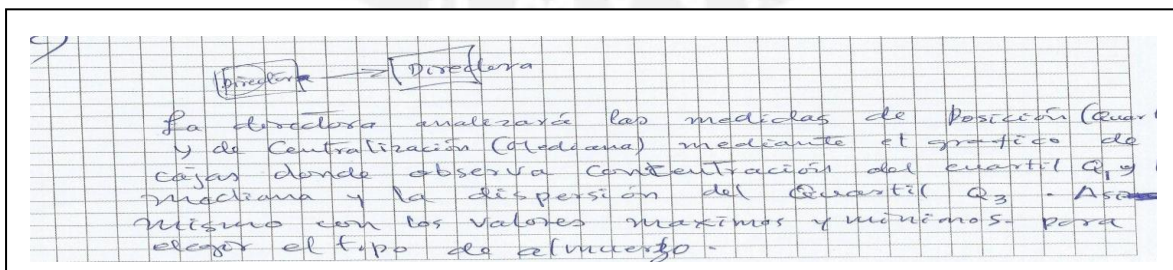 Director → Directora
La directora analizará las medidas de Posición (Quar
y de Centralización (Mediana) mediante el grafico de
cajas donde observa concentración del cuartil Q₁ y
mediana y la dispersión del Quartil Q₃ . Asi
mismo con los valores maximos y minimos para
elegir el tipo de almuerzo.